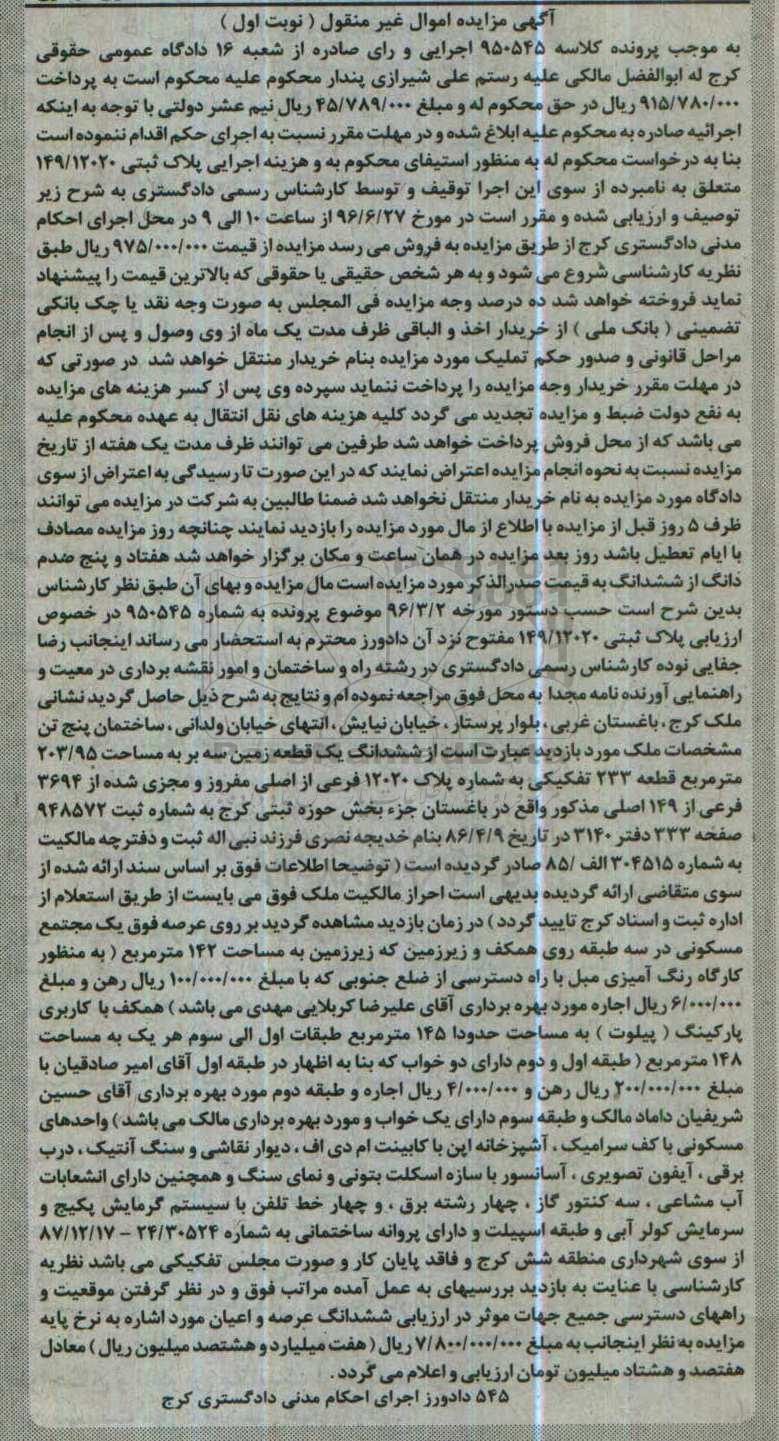 آگهی مزایده اموال غیر منقول ( نوبت اول )
به موجب پرونده کلاسه ۹۵۰۵۴۵ اجرایی و رای صادره از شعبه ۱۶ دادگاه عمومی حقوقی
کرج له ابوالفضل مالکی علیه رستم علی شیرازی پندار محکوم علیه محکوم است به پرداخت
۹۱۵/۷۸۰/۰۰۰ ریال در حق محکوم له و مبلغ ۴۵/۷۸۹/۰۰۰ ریال نیم عشر دولتی با توجه به اینکه
اجرائیه صادره به محکوم علیه ابلاغ شده و در مهلت مقرر نسبت به اجرای حکم اقدام ننموده است
بنا به درخواست محکوم له به منظور استیفای محکوم به و هزینه اجرایی پلاک ثبتی ۱۴۹/۱۲۰۲۰
متعلق به نامبرده از سوی این اجرا توقیف و توسط کارشناس رسمی دادگستری به شرح زیر
توصیف و ارزیابی شده و مقرر است در مورخ ۹۶/۶/۲۷ از ساعت ۱۰ الی ۹ در محل اجرای احکام
مدنی دادگستری کرج از طریق مزایده به فروش می رسد مزایده از قیمت ۹۷۵/۰۰۰/۰۰۰ ریال طبق
نظریه کارشناسی شروع می شود و به هر شخص حقیقی یا حقوقی که بالاترین قیمت را پیشنهاد
نماید فروخته خواهد شد ده درصد وجه مزایده فی المجلس به صورت وجه نقد یا چک بانکی
تضمینی ( بانک ملی ) از خریدار اخذ و الباقی ظرف مدت یک ماه از وی وصول و پس از انجام
مراحل قانونی و صدور حکم تملیک مورد مزایده بنام خریدار منتقل خواهد شد در صورتی که
در مهلت مقرر خریدار وجه مزایده را پرداخت ننماید سپرده وی پس از کسر هزینه های مزایده
به نفع دولت ضبط و مزایده تجدید می گردد کلیه هزینه های نقل انتقال به عهده محکوم علیه
می باشد که از محل فروش پرداخت خواهد شد طرفین می توانند ظرف مدت یک هفته از تاریخ
مزایده نسبت به نحوه انجام مزایده اعتراض نمایند که در این صورت تا رسیدگی به اعتراض از سوی
دادگاه مورد مزایده به نام خریدار منتقل نخواهد شد ضمنا طالبین به شرکت در مزایده می توانند
ظرف ۵ روز قبل از مزایده با اطلاع از مال مورد مزایده را بازدید نمایند چنانچه روز مزایده مصادف
با ایام تعطیل باشد روز بعد مزایده در همان ساعت و مکان برگزار خواهد شد هفتاد و پنج صدم
دانگ از ششدانگ به قیمت صدرالذکر مورد مزایده است مال مزایده و بهای آن طبق نظر کارشناس
بدین شرح است حسب دستور مورخه ۹۶/۳/۲ موضوع پرونده به شماره ۹۵۰۵۴۵ در خصوص
ارزیابی پلاک ثبتی ۱۴۹/۱۲۰۲۰ مفتوح نزد آن دادورز محترم به استحضار می رساند اینجانب رضا
جفایی نوده کارشناس رسمی دادگستری در رشته راه و ساختمان و امور نقشه برداری در معیت و
راهنمایی آورنده نامه مجدا به محل فوق مراجعه نموده ام و نتایج به شرح ذیل حاصل گردید نشانی
ملک کرج ، باغستان غربی ، بلوار پرستار ، خیابان نیایش ، انتهای خیابان ولدانی ، ساختمان پنج تن
مشخصات ملک مورد بازدید عبارت است از ششدانگ یک قطعه زمین سه بر به مساحت ۲۰۳/۹۵
مترمربع قطعه ۲۳۳ تفکیکی به شماره پلاک ۱۲۰۲۰ فرعی از اصلی مفروز و مجزی شده از ۳۶۹۴
فرعی از ۱۴۹ اصلی مذکور واقع در باغستان جزء بخش حوزه ثبتی کرج به شماره ثبت ۹۴۸۵۷۲
صفحه ۳۳۳ دفتر ۳۱۴۰ در تاریخ ۸۶/۴/۹ بنام خدیجه نصری فرزند نبی اله ثبت و دفترچه مالکیت
به شماره ۳۰۴۵۱۵ الف /۸۵ صادر گردیده است ( توضیحا اطلاعات فوق بر اساس سند ارائه شده از
سوی متقاضی ارائه گردیده بدیهی است احراز مالکیت ملک فوق می بایست از طریق استعلام از
اداره ثبت و اسناد کرج تایید گردد ) در زمان بازدید مشاهده گردید بر روی عرصه فوق یک مجتمع
مسکونی در سه طبقه روی همکف و زیرزمین که زیرزمین به مساحت ۱۴۲ مترمربع ( به منظور
کارگاه رنگ آمیزی مبل با راه دسترسی از ضلع جنوبی که با مبلغ ۱۰۰/۰۰۰/۰۰۰ ریال رهن و مبلغ
۶/۰۰۰/۰۰۰ ریال اجاره مورد بهره برداری آقای علیرضا کربلایی مهدی می باشد ) همکف با کاربری
پارکینگ ( پیلوت ) به مساحت حدودا ۱۴۵ مترمربع طبقات اول الی سوم هر یک به مساحت
۱۴۸ مترمربع ( طبقه اول و دوم دارای دو خواب که بنا به اظهار در طبقه اول آقای امیر صادقیان با
مبلغ ۲۰۰/۰۰۰/۰۰۰ ریال رهن و ۴/۰۰۰/۰۰۰ ریال اجاره و طبقه دوم مورد بهره برداری آقای حسین
شریفیان داماد مالک و طبقه سوم دارای یک خواب و مورد بهره برداری مالک می باشد ) واحدهای
مسکونی با کف سرامیک ، آشپزخانه اپن با کابینت ام دی اف ، دیوار نقاشی و سنگ آنتیک ، درب
برقی ، آیفون تصویری ، آسانسور با سازه اسکلت بتونی و نمای سنگ و همچنین دارای انشعابات
آب مشاعی ، سه کنتور گاز ، چهار رشته برق ، و چهار خط تلفن با سیستم گرمایش پکیج و
سرمایش کولر آبی و طبقه اسپیلت و دارای پروانه ساختمانی به شماره ۲۴/۳۰۵۲۴ – ۸۷/۱۲/۱۷
از سوی شهرداری منطقه شش کرج و فاقد پایان کار و صورت مجلس تفکیکی می باشد نظریه
کارشناسی با عنایت به بازدید بررسیهای به عمل آمده مراتب فوق و در نظر گرفتن موقعیت و
راههای دسترسی جمیع جهات موثر در ارزیابی ششدانگ عرصه و اعیان مورد اشاره به نرخ پایه
مزایده به نظر اینجانب به مبلغ ۷/۸۰۰/۰۰۰/۰۰۰ ریال ( هفت میلیارد و هشتصد میلیون ریال ) معادل
هفتصد و هشتاد میلیون تومان ارزیابی و اعلام می گردد .
۵۴۵ دادورز اجرای احکام مدنی دادگستری کرج